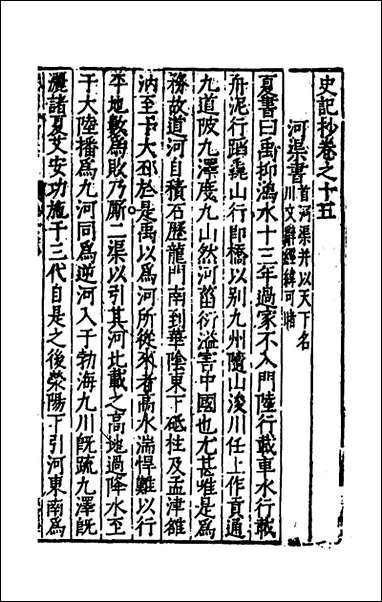 史記抄卷之十五
河渠書首河渠并以天下名
川文辭經緯可睹
夏書曰禹抑鴻水十三年過家不入門陸行載車水行載
舟泥行蹈毳山行即橋以別九州隨山浚川任土作貢通
九道陂九澤度九山然河菑衍溢害中國也尤甚唯是爲
務故道河自積石歷龍門南到華陰東下砥柱及孟津雒
汭至于大邳於是禹以爲河所從來者高水湍悍難以行
平地數爲敗乃厮二渠以引其河北載之高地過降水至
于大陸播爲九河同爲逆河入于勃海九川既疏九澤既
灑諸夏艾安功施于三代自是之後滎陽下引河東南爲